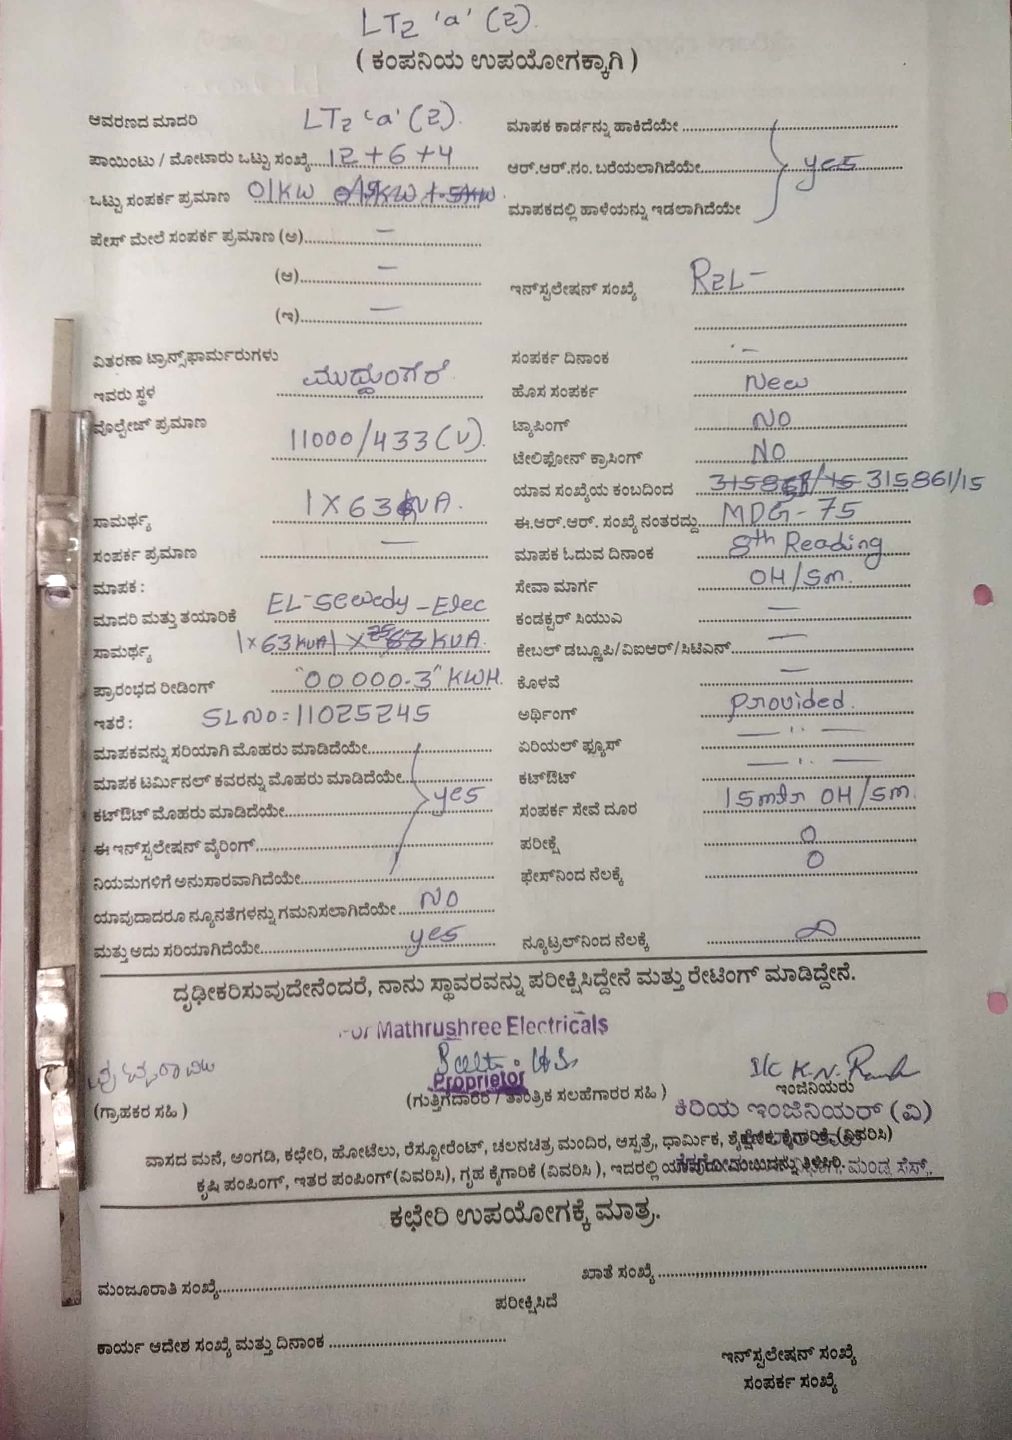 LT2 'a' (2).
( ಕಂಪನಿಯ ಉಪಯೋಗಕ್ಕಾಗಿ )
ಆವರಣದ ಮಾದರಿ LT2 'a' (2).
ಪಾಯಿಂಟು / ಮೋಟಾರು ಒಟ್ಟು ಸಂಖ್ಯೆ 12+6+4
ಒಟ್ಟು ಸಂಪರ್ಕ ಪ್ರಮಾಣ 01KW
ಪೇಸ್ ಮೇಲೆ ಸಂಪರ್ಕ ಪ್ರಮಾಣ (ಅ) –
(ಆ) –
(ಇ) –
ವಿತರಣಾ ಟ್ರಾನ್ಸ್‌ಫಾರ್ಮರುಗಳು
ಇವರು ಸ್ಥಳ
ವೊಲ್ಟೇಜ್ ಪ್ರಮಾಣ 11000/433(V).
ಸಾಮರ್ಥ್ಯ 1X63KVA.
ಸಂಪರ್ಕ ಪ್ರಮಾಣ –
ಮಾಪಕ :
ಮಾದರಿ ಮತ್ತು ತಯಾರಿಕೆ EL-Sewedy-Elec
ಸಾಮರ್ಥ್ಯ 1×63KVA
ಪ್ರಾರಂಭದ ರೀಡಿಂಗ್ "00000.3" KWH.
ಇತರೆ : SLNO=11025245
ಮಾಪಕವನ್ನು ಸರಿಯಾಗಿ ಮೊಹರು ಮಾಡಿದೆಯೇ
ಮಾಪಕ ಟರ್ಮಿನಲ್ ಕವರನ್ನು ಮೊಹರು ಮಾಡಿದೆಯೇ
ಕಟ್‌ಔಟ್ ಮೊಹರು ಮಾಡಿದೆಯೇ yes
ಈ ಇನ್‌ಸ್ಟಲೇಷನ್ ವೈರಿಂಗ್
ನಿಯಮಗಳಿಗೆ ಅನುಸಾರವಾಗಿದೆಯೇ
ಯಾವುದಾದರೂ ನ್ಯೂನತೆಗಳನ್ನು ಗಮನಿಸಲಾಗಿದೆಯೇ NO
ಮತ್ತು ಅದು ಸರಿಯಾಗಿದೆಯೇ yes
ಮಾಪಕ ಕಾರ್ಡನ್ನು ಹಾಕಿದೆಯೇ
ಆರ್.ಆರ್.ನಂ. ಬರೆಯಲಾಗಿದೆಯೇ yes
ಮಾಪಕದಲ್ಲಿ ಹಾಳೆಯನ್ನು ಇಡಲಾಗಿದೆಯೇ
ಇನ್‌ಸ್ಟಲೇಷನ್ ಸಂಖ್ಯೆ R2L–
ಸಂಪರ್ಕ ದಿನಾಂಕ
ಹೊಸ ಸಂಪರ್ಕ New
ಟ್ಯಾಪಿಂಗ್ NO
ಟೇಲಿಫೋನ್ ಕ್ರಾಸಿಂಗ್ NO
ಯಾವ ಸಂಖ್ಯೆಯ ಕಂಬದಿಂದ 315861/15
ಈ.ಆರ್.ಆರ್. ಸಂಖ್ಯೆ ನಂತರದ್ದು MDG-75
ಮಾಪಕ ಓದುವ ದಿನಾಂಕ 8th Reading
ಸೇವಾ ಮಾರ್ಗ OH/Sm.
ಕಂಡಕ್ಟರ್ ಸಿಯುಎ –
ಕೇಬಲ್ ಡಬ್ಲ್ಯೂಪಿ/ವಿಐಆರ್/ಸಿಟಿಎಸ್ –
ಕೊಳವೆ –
ಅರ್ಥಿಂಗ್ Provided.
ಏರಿಯಲ್ ಫ್ಯೂಸ್ — ,, —
ಕಟ್‌ಔಟ್ — ,, —
ಸಂಪರ್ಕ ಸೇವೆ ದೂರ OH/Sm.
ಪರೀಕ್ಷೆ 0
ಫೇಸ್‌ನಿಂದ ನೆಲಕ್ಕೆ 0
ನ್ಯೂಟ್ರಲ್‌ನಿಂದ ನೆಲಕ್ಕೆ ∞
ದೃಢೀಕರಿಸುವುದೇನೆಂದರೆ, ನಾನು ಸ್ಥಾವರವನ್ನು ಪರೀಕ್ಷಿಸಿದ್ದೇನೆ ಮತ್ತು ರೇಟಿಂಗ್ ಮಾಡಿದ್ದೇನೆ.
For Mathrushree Electricals
Proprietor
(ಗ್ರಾಹಕರ ಸಹಿ )
(ಗುತ್ತಿಗೆದಾರರ / ತಾಂತ್ರಿಕ ಸಲಹೆಗಾರರ ಸಹಿ )
ಇಂಜಿನಿಯರು
ಕಿರಿಯ ಇಂಜಿನಿಯರ್ (ವಿ)
ವಾಸದ ಮನೆ, ಅಂಗಡಿ, ಕಛೇರಿ, ಹೋಟೆಲು, ರೆಸ್ಟೋರೆಂಟ್, ಚಲನಚಿತ್ರ ಮಂದಿರ, ಆಸ್ಪತ್ರೆ, ಧಾರ್ಮಿಕ, ಶೈಕ್ಷಣಿಕ, ಕೈಗಾರಿಕೆ (ವಿವರಿಸಿ)
ಕೃಷಿ ಪಂಪಿಂಗ್, ಇತರ ಪಂಪಿಂಗ್(ವಿವರಿಸಿ), ಗೃಹ ಕೈಗಾರಿಕೆ (ವಿವರಿಸಿ ), ಇದರಲ್ಲಿ ತಿಳಿಸಿರಿ.
ಕಛೇರಿ ಉಪಯೋಗಕ್ಕೆ ಮಾತ್ರ.
ಮಂಜೂರಾತಿ ಸಂಖ್ಯೆ
ಖಾತೆ ಸಂಖ್ಯೆ
ಪರೀಕ್ಷಿಸಿದೆ
ಕಾರ್ಯ ಆದೇಶ ಸಂಖ್ಯೆ ಮತ್ತು ದಿನಾಂಕ
ಇನ್‌ಸ್ಟಲೇಷನ್ ಸಂಖ್ಯೆ
ಸಂಪರ್ಕ ಸಂಖ್ಯೆ